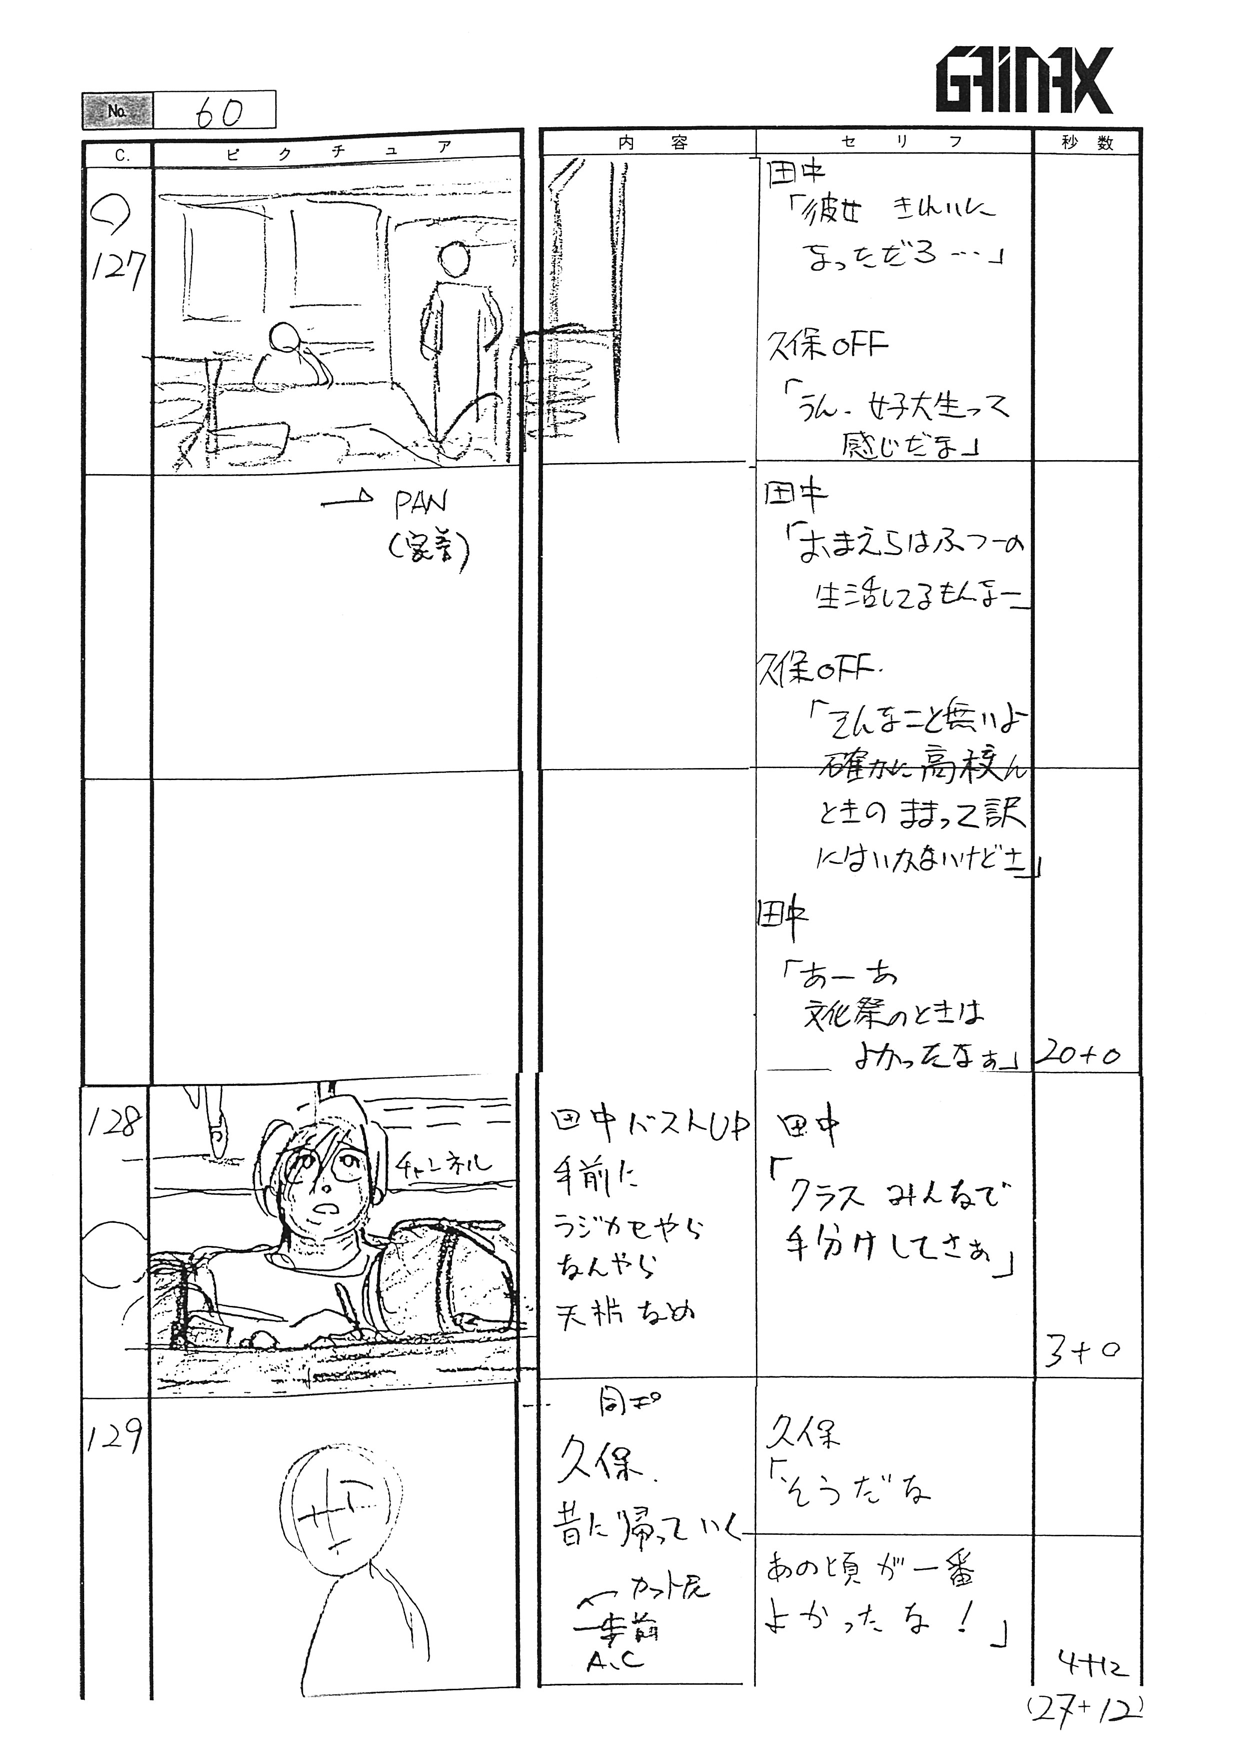 GAINAX
No. 60
C. ピクチュア 内容 セリフ 秒数
127
田中
「彼女 きれいに
なっただろ…」
久保OFF
「うん、女子大生って
感じだな」
→ PAN
(密着)
田中
「おまえらはふつーの
生活してるもんなー」
久保OFF.
「そんなこと無いよ
確かに高校ん
ときのままって訳
にはいかないけどさ」
田中
「あーあ
文化祭のときは
よかったなぁ」
20+0
128
チャンネル
田中バストUP
手前に
ラジカセやら
なんやら
天板なめ
田中
「クラスみんなで
手分けしてさぁ」
3+0
129
同ポ
久保.
昔に帰っていく
カット尻
一歩前
A.C
久保
「そうだな
あの頃が一番
よかったな!」
4+12
(27+12)